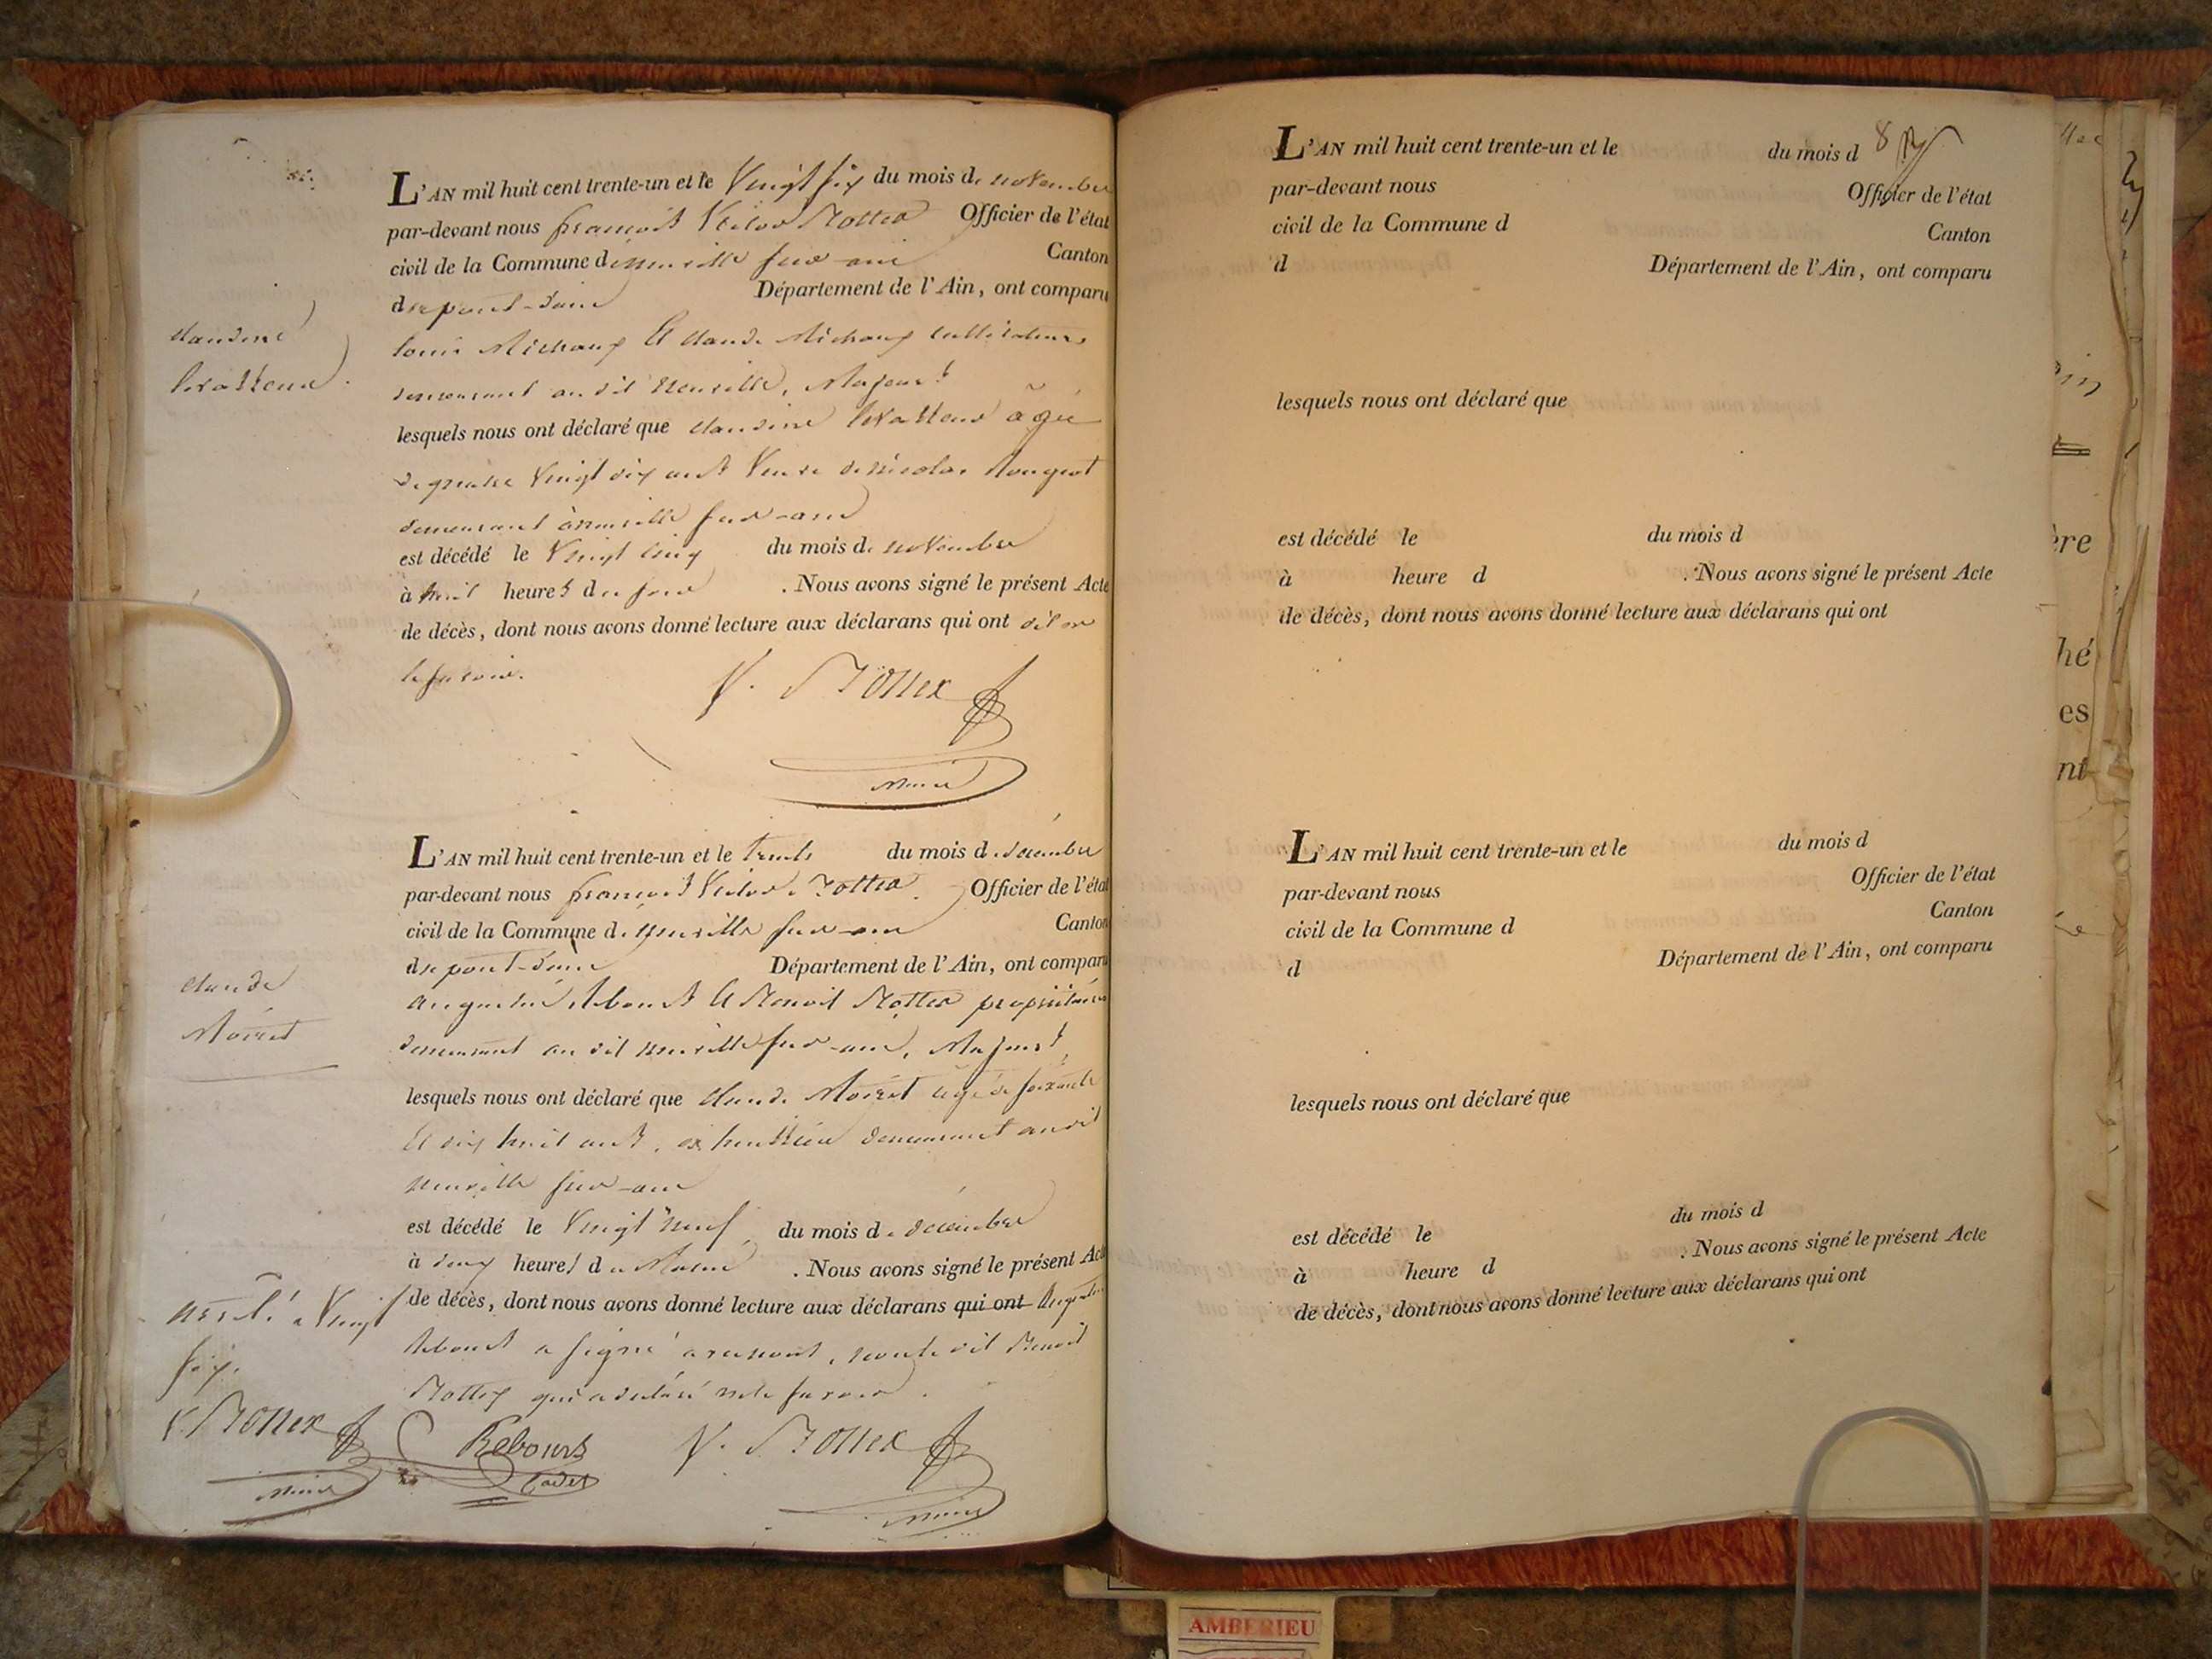 L'AN mil huit cent trente-un et le Vingt six du mois de novembre
par-devant nous françois Victor Bottex Officier de l'état
civil de la Commune de neuville sur ain Canton
de pont-d'ain Département de l'Ain, ont comparu
claudine
louis Michaux et claude Michaux cultivateurs
demeurant au dit neuville, Majeurs
lesquels nous ont déclaré que claudine âgée
de quatre Vingt dix ans Veuve de nicolas
demeurant à neuville sur-ain
est décédé le Vingt cinq du mois de novembre
à huit heures du soir . Nous avons signé le présent Acte
de décès, dont nous avons donné lecture aux déclarans qui ont dit ne
le savoir.
V. Bottex
Maire
L'AN mil huit cent trente-un et le trente du mois de décembre
par-devant nous françois Victor Bottex Officier de l'état
civil de la Commune de neuville sur-ain Canton
de pont-d'ain Département de l'Ain, ont comparu
claude
Moiret
augustin Rebours et Benoit Bottex propriétaires
demeurant au dit neuville sur-ain, Majeurs,
lesquels nous ont déclaré que claude Moiret agé de soixante
et dix huit ans, ex huissier demeurant au dit
neuville sur-ain
est décédé le Vingt neuf du mois de décembre
à deux heures du Matin . Nous avons signé le présent Acte
de décès, dont nous avons donné lecture aux déclarans qui ont augustin
arrêté à Vingt
six.
Rebours a signé avec nous, non le dit Benoit
Bottex qui a déclaré ne le savoir.
V. Bottex
Maire
Rebours
Cadet
V. Bottex
Maire
L'AN mil huit cent trente-un et le du mois d
8
par-devant nous Officier de l'état
civil de la Commune d Canton
d Département de l'Ain, ont comparu
lesquels nous ont déclaré que
est décédé le du mois d
à heure d . Nous avons signé le présent Acte
de décès, dont nous avons donné lecture aux déclarans qui ont
L'AN mil huit cent trente-un et le du mois d
par-devant nous Officier de l'état
civil de la Commune d Canton
d Département de l'Ain, ont comparu
lesquels nous ont déclaré que
est décédé le du mois d
à heure d . Nous avons signé le présent Acte
de décès, dont nous avons donné lecture aux déclarans qui ont
ère
hé
es
nt
AMBERIEU